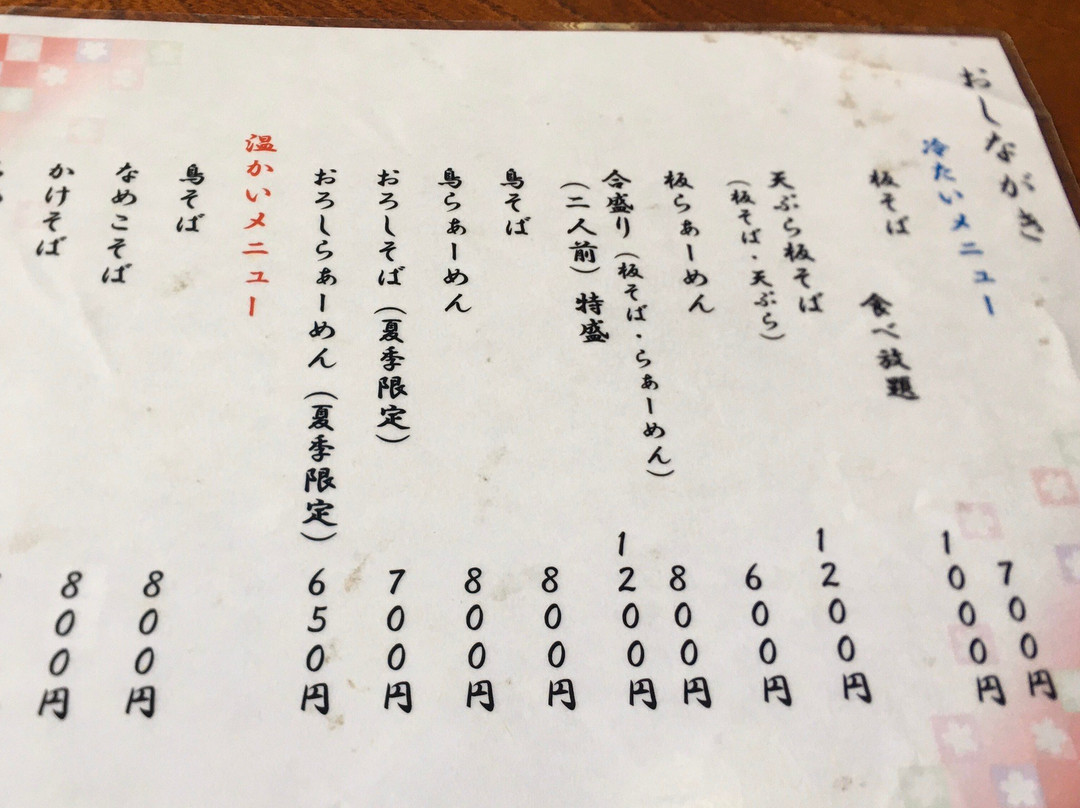 おしながき
冷たいメニュー
板そば 700円
食べ放題 1000円
天ぷら板そば 1200円
(板そば・天ぷら)
板らぁーめん 600円
合盛り(板そば・らぁーめん) 800円
(二人前)特盛 1200円
鳥そば 800円
鳥らぁーめん 800円
おろしそば(夏季限定) 700円
おろしらぁーめん(夏季限定) 650円
温かいメニュー
鳥そば 800円
なめこそば 800円
かけそば